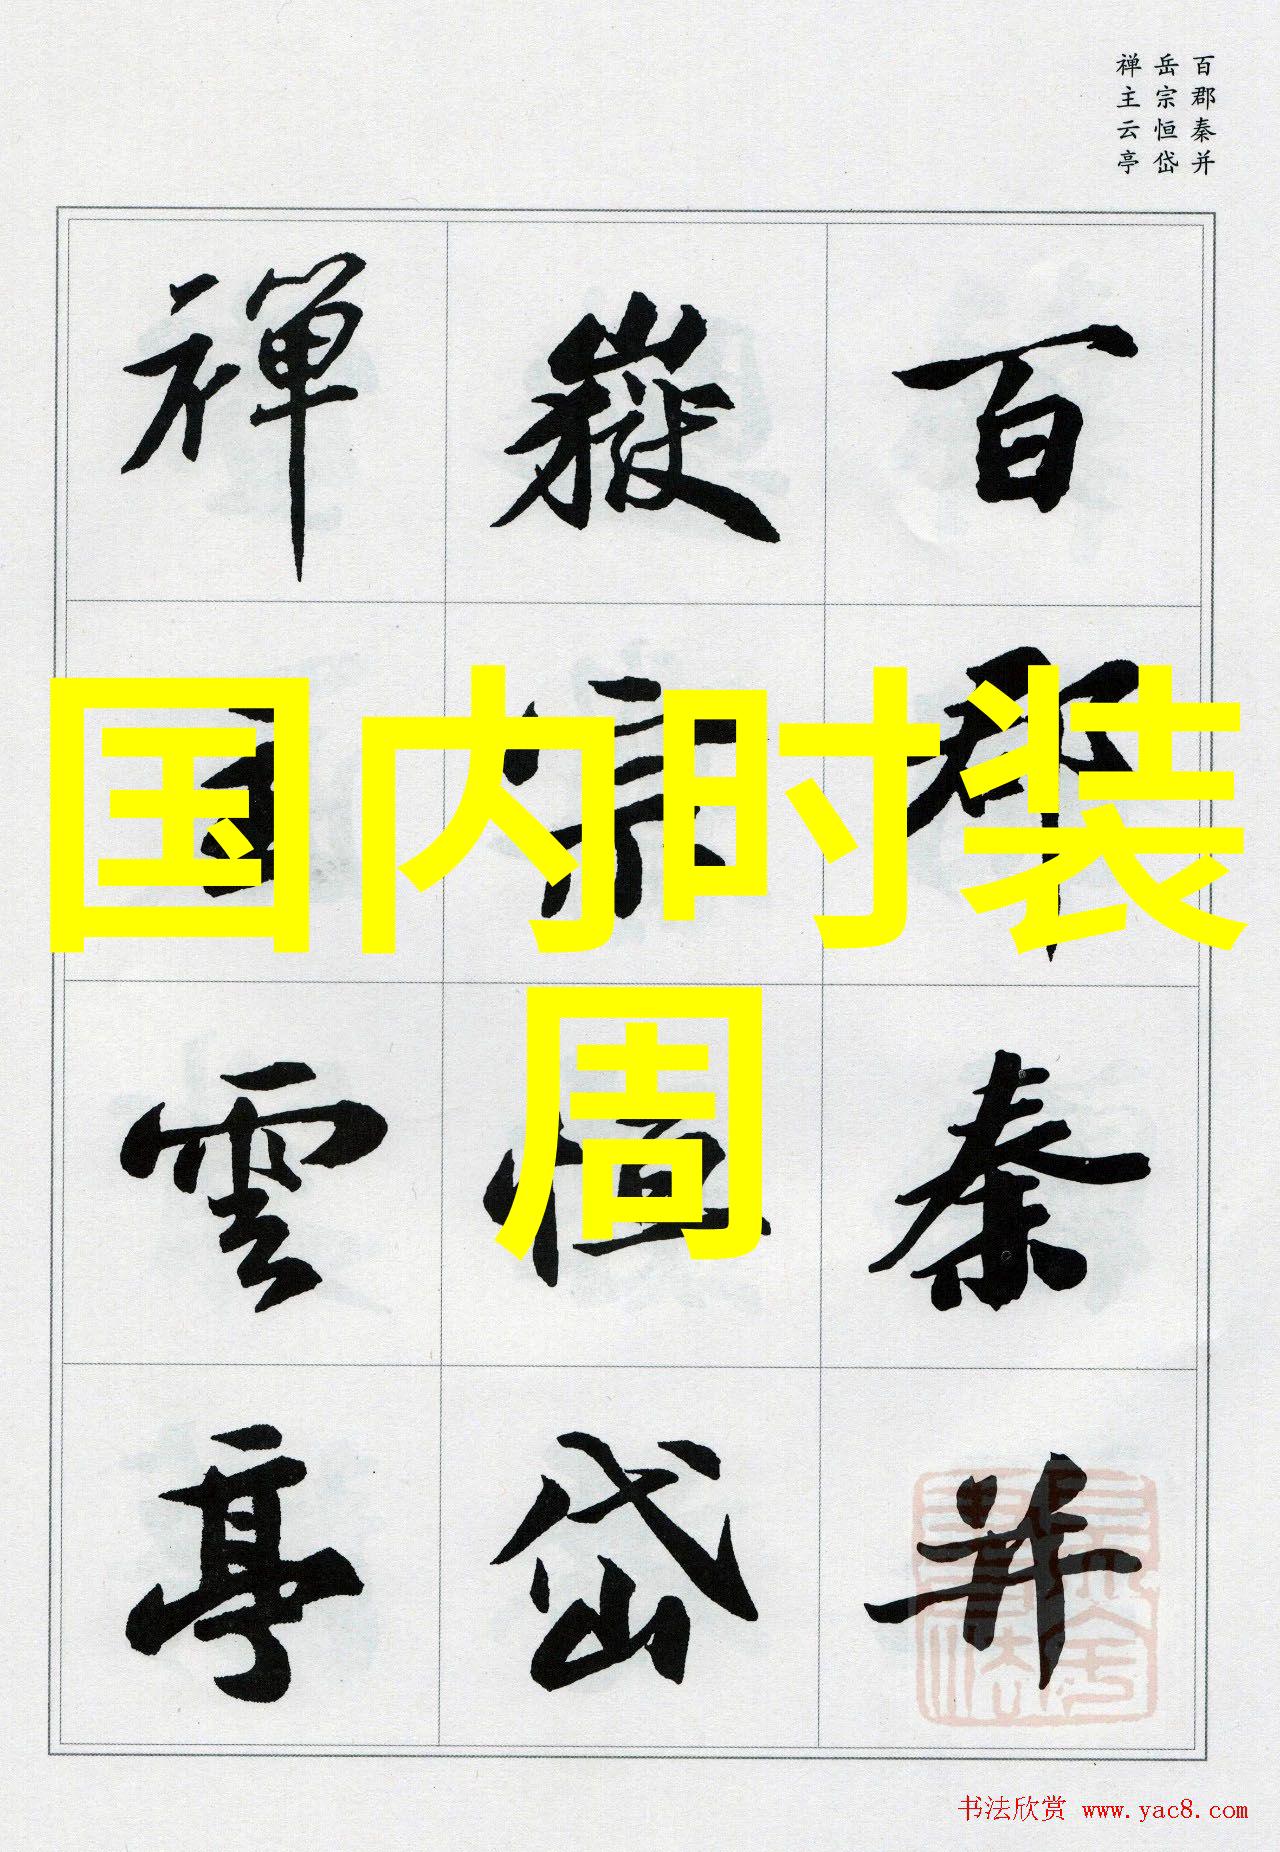 百郡秦并
岳宗恒岱
禅主云亭
百郡秦并
嶽宗恒岱
禅主雲亭
国内时装
周
书法欣赏 www.yac8.com